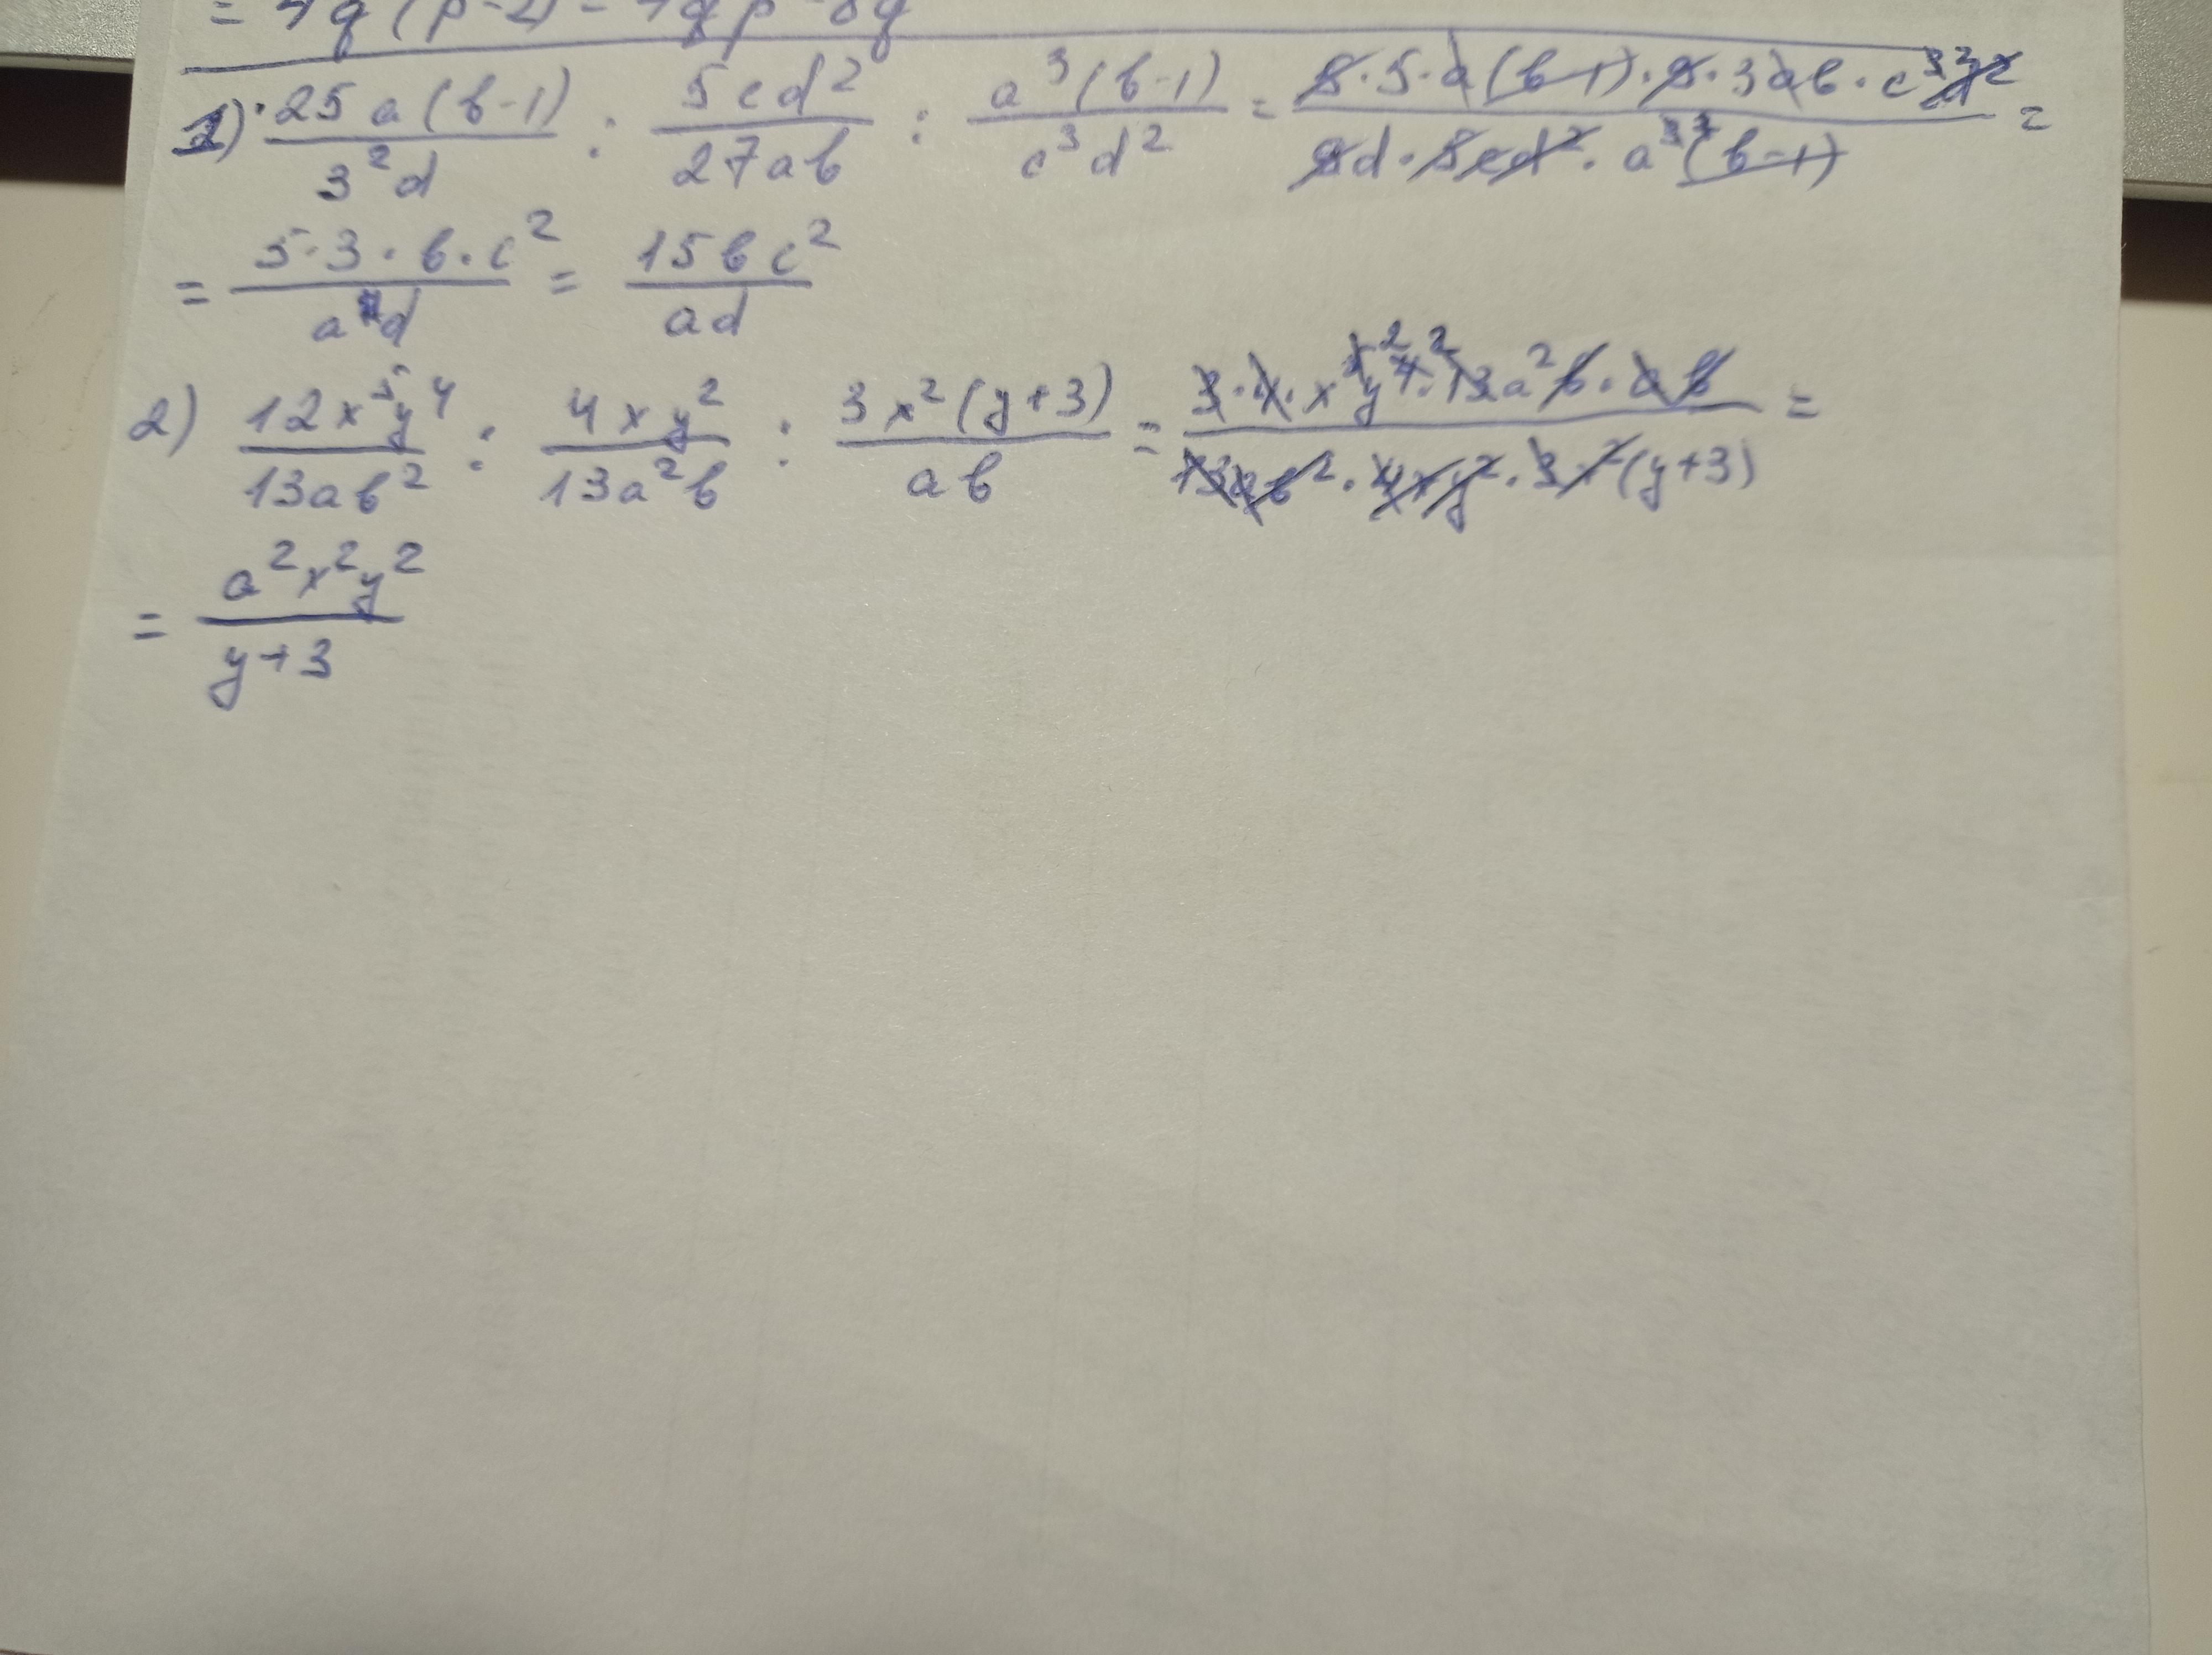 = 4q(p-2) = 4qp-8q
1) 25a(b-1)/3²d : 5cd²/27ab : a³(b-1)/c³d² = 5·5·a(b-1)·9·3ab·c³d²/9d·5cd²·a³(b-1) =
= 5·3·b·c²/ad = 15bc²/ad
2) 12x⁵y⁴/13ab² : 4xy²/13a²b : 3x²(y+3)/ab = 3·4·x⁵y⁴·13a²b·ab/13ab²·4xy²·3x²(y+3) =
= a²x²y²/y+3